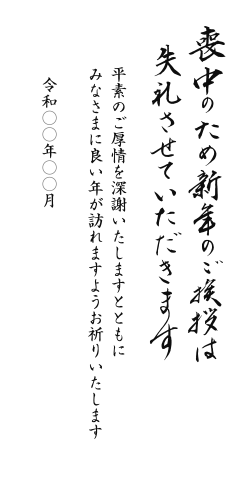 喪中のため新年のご挨拶は
失礼させていただきます
平素のご厚情を深謝いたしますとともに
みなさまに良い年が訪れますようお祈りいたします
令和〇〇年〇〇月